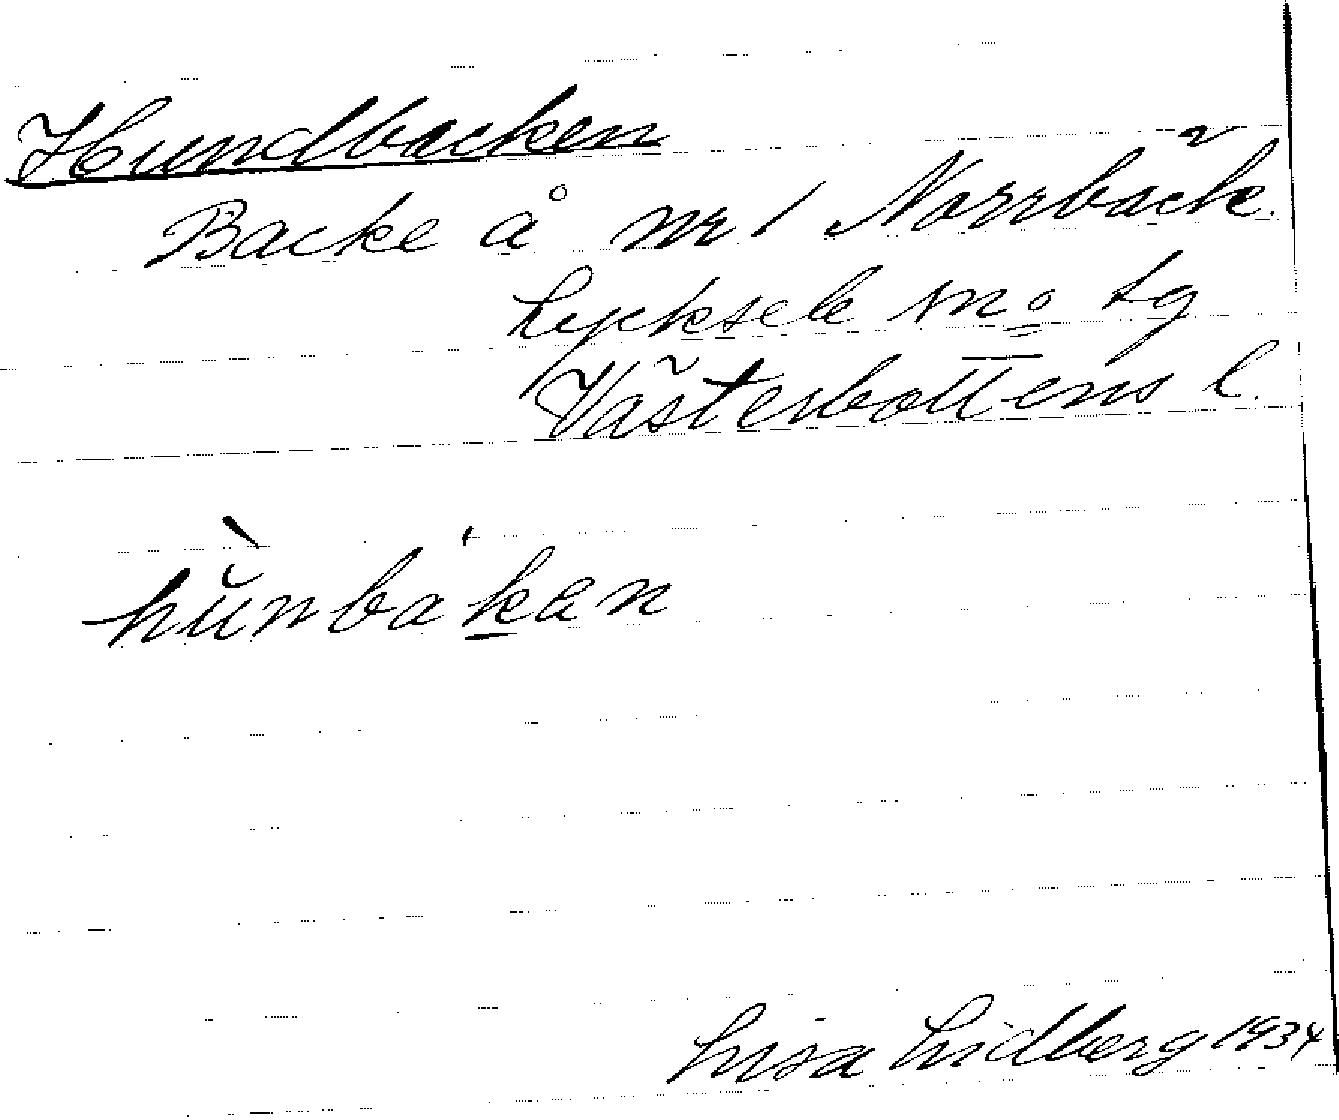 Hundbacken
Backe å nr 1 Norrbäck
Lycksele mo tg
Västerbottens l.
hŭnbakan
Lisa Lidberg 1934